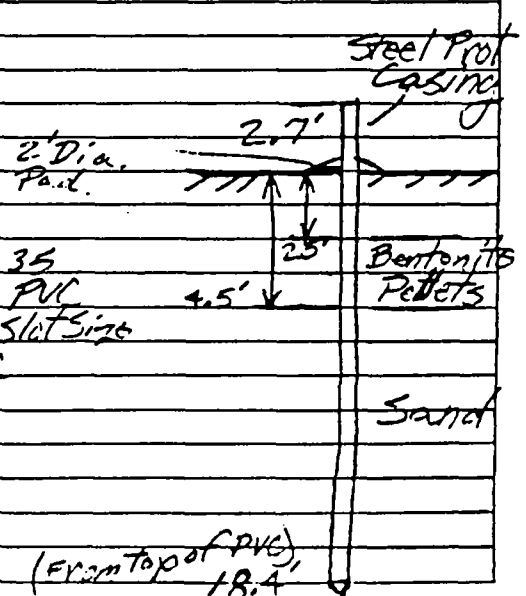 Steel Prot
Casing
2.7'
2' Dia.
Pad.
2.5'
35
PVC
Slot Size
4.5'
Bentonite
Pellets
Sand
(From top of PVC)
18.4'